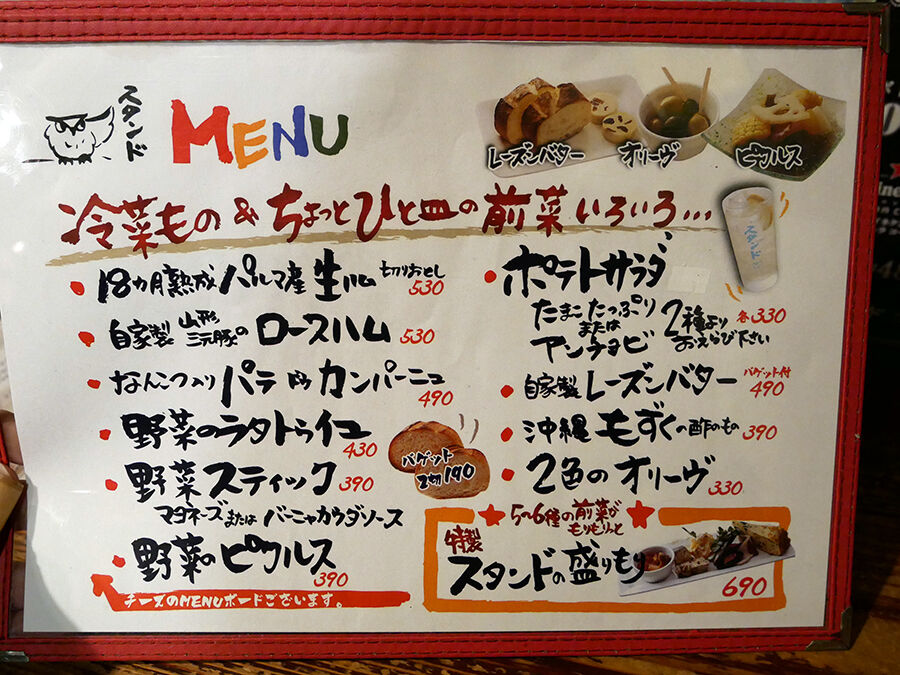 スタンド
MENU
レーズンバター
オリーヴ
ピクルス
冷菜もの & ちょっとひと皿の前菜いろいろ...
スタンド
• 18カ月熟成 パルマ産 生ハム 切りおとし 530
• 自家製 山形三元豚の ロースハム 530
• なんこつ入り パテ ドゥ カンパーニュ 490
• 野菜のラタトゥイユ 430
• 野菜スティック 390
マヨネーズ または バーニャカウダソース
• 野菜のピクルス 390
チーズのMENUボードございます。
バゲット
2切 190
• ポテトサラダ
たまごたっぷり
または
アンチョビ
2種より
おえらび下さい
各330
• 自家製 レーズンバター バゲット付 490
• 沖縄 もずくの酢のもの 390
• 2色のオリーヴ 330
★ 5~6種の前菜が ★
もりもりっと
特製
スタンドの盛りもり
690